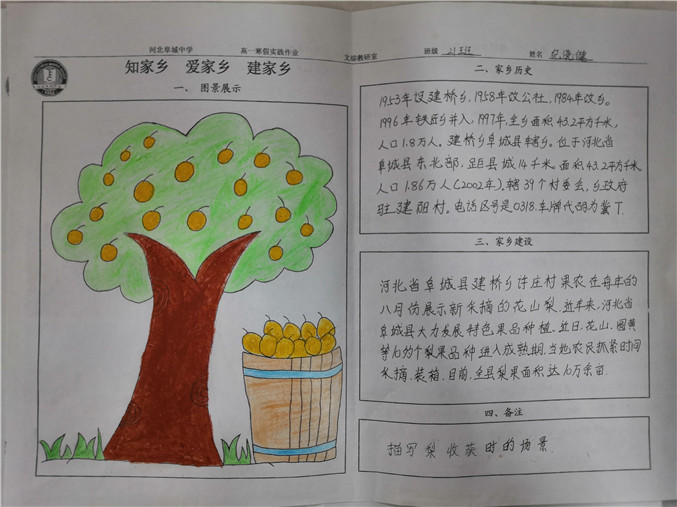 河北阜城中学 高一寒假实践作业 文综教研室 班级 姓名
知家乡 爱家乡 建家乡
一、图景展示
二、家乡历史
1953年设建桥乡,1958年改公社,1984年改乡。
1996年铁匠乡并入,1997年,全乡面积43.2平方千米,
人口1.8万人。建桥乡阜城县辖乡。位于河北省
阜城县东北部,距县城14千米。面积43.2平方千米
人口1.86万人(2002年),辖39个村委会,乡政府
驻建阳村。电话区号是0318.车牌代码为冀T.
三、家乡建设
河北省阜城县建桥乡许庄村果农在每年的
八月份展示新采摘的花山梨.近年来,河北省
阜城县大力发展特色果品种植.近日,花山、圆黄
等10多个梨果品种进入成熟期,当地农民抓紧时间
采摘、装箱.目前,全县梨果面积达10万余亩.
四、备注
描写梨收获时的场景